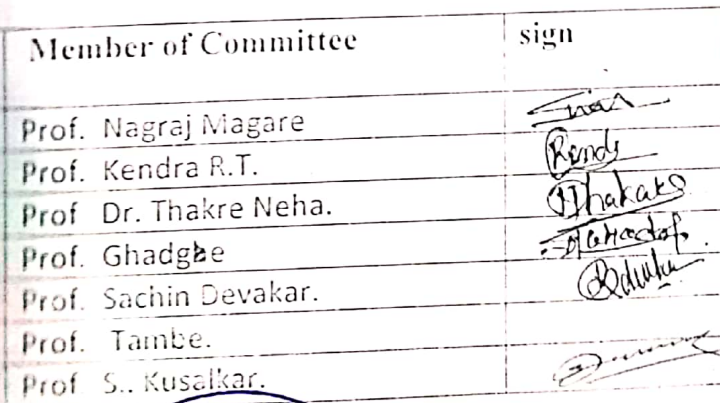 Member of Committee sign
Prof. Nagraj Magare
Prof. Kendra R.T.
Prof Dr. Thakre Neha.
Prof. Ghadgbe
Prof. Sachin Devakar.
Prof. Tambe.
Prof S.. Kusalkar.